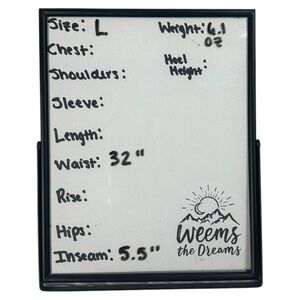 Size: L
Weight: 6.1
oz
Chest:
Heel
Height:
Shoulders:
Sleeve:
Length:
Waist: 32"
Rise:
Hips:
Inseam: 5.5"
Weems
the Dreams